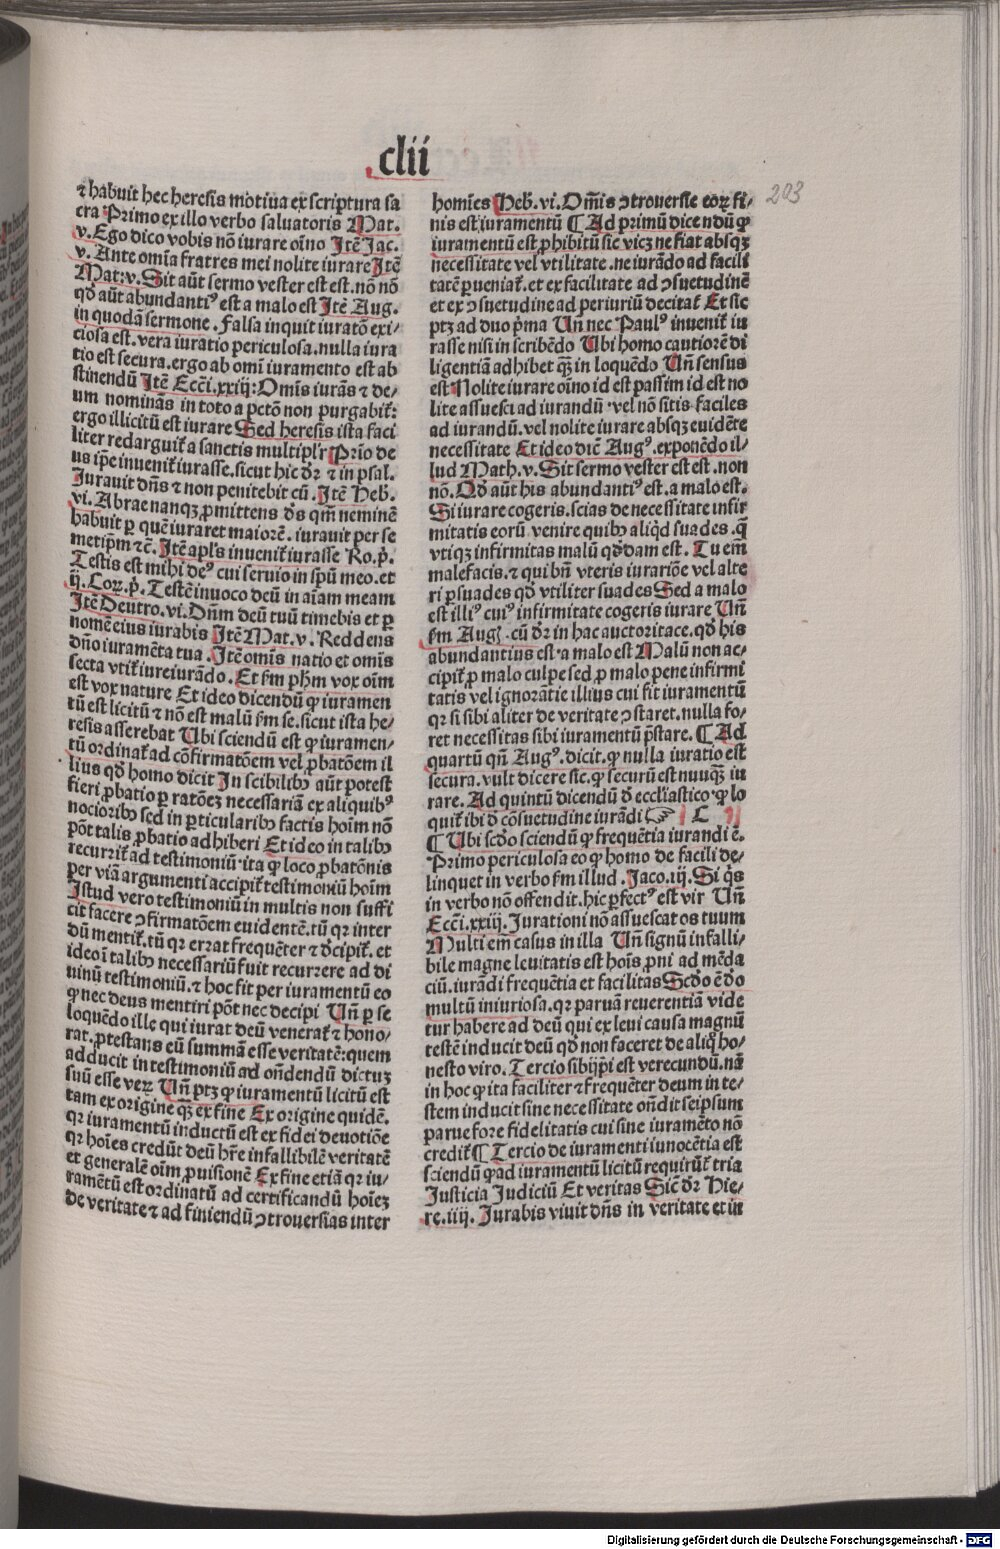 clii
203
⁊ habuit hec heresis motiua ex scriptura sa
cra Primo ex illo verbo saluatoris Mat.
v. Ego dico vobis nō iurare oīno Jtē Jac.
v. Ante omīa fratres mei nolite iurare Jtē
Mat: v. Sit aūt sermo vester est est. nō nō
qd̄ aūt abundantiꝰ est a malo est Jtē Aug.
in quodā sermone. Falsa inquit iuratō exi/
ciosa est. vera iuratio periculosa. nulla iura
tio est secura. ergo ab omī iuramento est ab
stinendū Jtē Ecc̄i. xxiij: Omīs iurās ⁊ de/
um nominās in toto a pctō non purgabiť:
ergo illicitū est iurare Sed heresis ista faci
liter redarguiť a sanctis multipl'r Prīo de
us ip̄e inueniť iurasse. sicut hic dr̄ ⁊ in psal.
Jurauit dn̄s ⁊ non penitebit eū. Jtē Heb.
vi. Abrae nanqꝫ ꝓmittens d̄s qm̄ neminē
habuit ꝑ quē iuraret maiorē. iurauit per se
metip̄m ⁊c̄. Jtē apl's inueniť iurasse Ro. p̄.
Testis est mihi deꝰ cui seruio in sp̄u meo. et
ij. Coꝝ. p̄. Testē inuoco deū in aīam meam
Jtē Deutro. vi. Dn̄m deū tuū timebis et ꝑ
nomē eius iurabis Jtē Mat. v. Reddens
dn̄o iuramēta tua. Jtē omīs natio et omīs
secta vtiť iureiurādo. Et ſm ph̄m vox oīm
est vox nature Et ideo dicendū ꝙ iuramen
tū est licitū ⁊ nō est malū ſm se. sicut ista he/
resis asserebat Ubi sciendū est ꝙ iuramen/
tū ordinať ad cōfirmatōem vel ꝓbatōem il
lius qd̄ homo dicit Jn scibilibꝰ aūt potest
fieri ꝓbatio ꝑ ratōeꝫ necessariā ex aliquibꝰ
nocioribꝰ sed in ꝑticularibꝰ factis hoīm nō
pōt talis ꝓbatio adhiberi Et ideo in talibꝰ
recurriť ad testimoniū. ita ꝙ loco ꝓbatōnis
per viā argumenti accipiť testimoniū hoīm
Jstud vero testimoniū in multis non suffi
cit facere ↄfirmatōem euidentē. tū qꝛ inter
dū mentiť. tū qꝛ erꝛat frequēter ⁊ d̄cipiť. et
ideo ī talibꝰ necessariū fuit recurꝛere ad di
uinū testimoniū. ⁊ hoc fit per iuramentū eo
ꝙ nec deus mentiri pōt nec decipi Un̄ ꝑ se
loquēdo ille qui iurat deū venerať ⁊ hono/
rat. ꝓtestans eū summā esse veritatē: quem
adducit in testimoniū ad on̄dendū dictuꝫ
suū esse veꝝ Un̄ ptꝫ ꝙ iuramentū licitū est
tam ex origine qꝫ̄ ex fine Ex origine quidē.
qꝛ iuramentū inductū est ex fidei deuotiōe
qꝛ hoīes credūt deū hr̄e infallibilē veritatē
et generalē oīm ꝓuisionē Ex fine etiā qꝛ iu/
ramētū est ordinatū ad certificandū hoīeꝫ
de veritate ⁊ ad finiendū ↄtrouersias inter
homīes Heb. vi. Om̄is ↄtrouersie eoꝝ fi/
nis est iuramentū ¶ Ad primū dicendū ꝙ
iuramentū est ꝓhibitū sic vicꝫ ne fiat absqꝫ
necessitate vel vtilitate. ne iurādo ad facili
tatē ꝑueniať. et ex facilitate ad ↄsuetudinē
et ex ↄsuetudine ad periuriū decitať Et sic
ptꝫ ad duo p̄ma Un̄ nec Paulꝰ inueniť iu
rasse nisi in scribēdo Ubi homo cautiorē di
ligentiā adhibet qꝫ̄ in loquēdo Un̄ sensus
est Nolite iurare oīno id est passim id est no
lite assuesci ad iurandū. vel nō sitis faciles
ad iurandū. vel nolite iurare absqꝫ euidēte
necessitate Et ideo dic̄ Augꝰ. exponēdo il/
lud Math. v. Sit sermo vester est est. non
nō. Qd̄ aūt his abundantiꝰ est. a malo est.
Si iurare cogeris. scias de necessitate infir
mitatis eorū venire quibꝰ aliqd̄ suades. q̄
vtiqꝫ infirmitas malū qd̄dam est. Tu em̄
malefacis. ⁊ qui bn̄ vteris iurariōe vel alte
ri ꝑsuades qd̄ vtiliter suades Sed a malo
est illiꝰ cuiꝰ infirmitate cogeris iurare Un̄
ſm Augꝰ. cū dr̄ in hac auctoritate. qd̄ his
abundantius est. a malo est Malū non ac/
cipiť ꝓ malo culpe sed ꝓ malo pene infirmi
tatis vel ignorātie illius cui fit iuramentū
qꝛ si sibi aliter de veritate ↄstaret. nulla fo/
ret necessitas sibi iuramentū p̄stare. ¶ Ad
quartū qn̄ Augꝰ. dicit. ꝙ nulla iuratio est
secura. vult dicere sic. ꝙ securū est nunqꝫ iu
rare. Ad quintū dicendū d̄ eccl'iastico. ꝙ lo
quiť ibi d̄ cōsuetudine iurādi ☞ C
¶ Ubi scd̄o sciendū ꝙ frequētia iurandi ē.
Primo periculosa eo ꝙ homo de facili de/
linquet in verbo ſm illud. Jaco. iij. Si q̇s
in verbo nō offendit. hic ꝑfectꝰ est vir Un̄
Ecc̄i. xxiij. Jurationi nō assuescat os tuum
Multi em̄ casus in illa Un̄ signū infalli/
bile magne leuitatis est hoīs ꝓni ad mēda
ciū. iurādi frequētia et facilitas Scd̄o ē d̄o
multū iniuriosa. qꝛ paruā reuerentiā vide
tur habere ad deū qui ex leui causa magnū
testē inducit deū qd̄ non faceret de aliq̇ ho/
nesto viro. Tercio sibijp̄i est verecundū. nā
in hoc ꝙ ita faciliter ⁊ frequēter deum in te/
stem inducit sine necessitate on̄dit seipsum
parue fore fidelitatis cui sine iuramēto nō
crediť ¶ Tercio de iuramenti iunocētia est
sciendū ꝙ ad iuramentū licitū requirūť tria
Justicia Judiciū Et veritas Sic̄ dr̄ Hie/
re. iiij. Jurabis viuit dn̄s in veritate et in
Digitalisierung gefördert durch die Deutsche Forschungsgemeinschaft - DFG